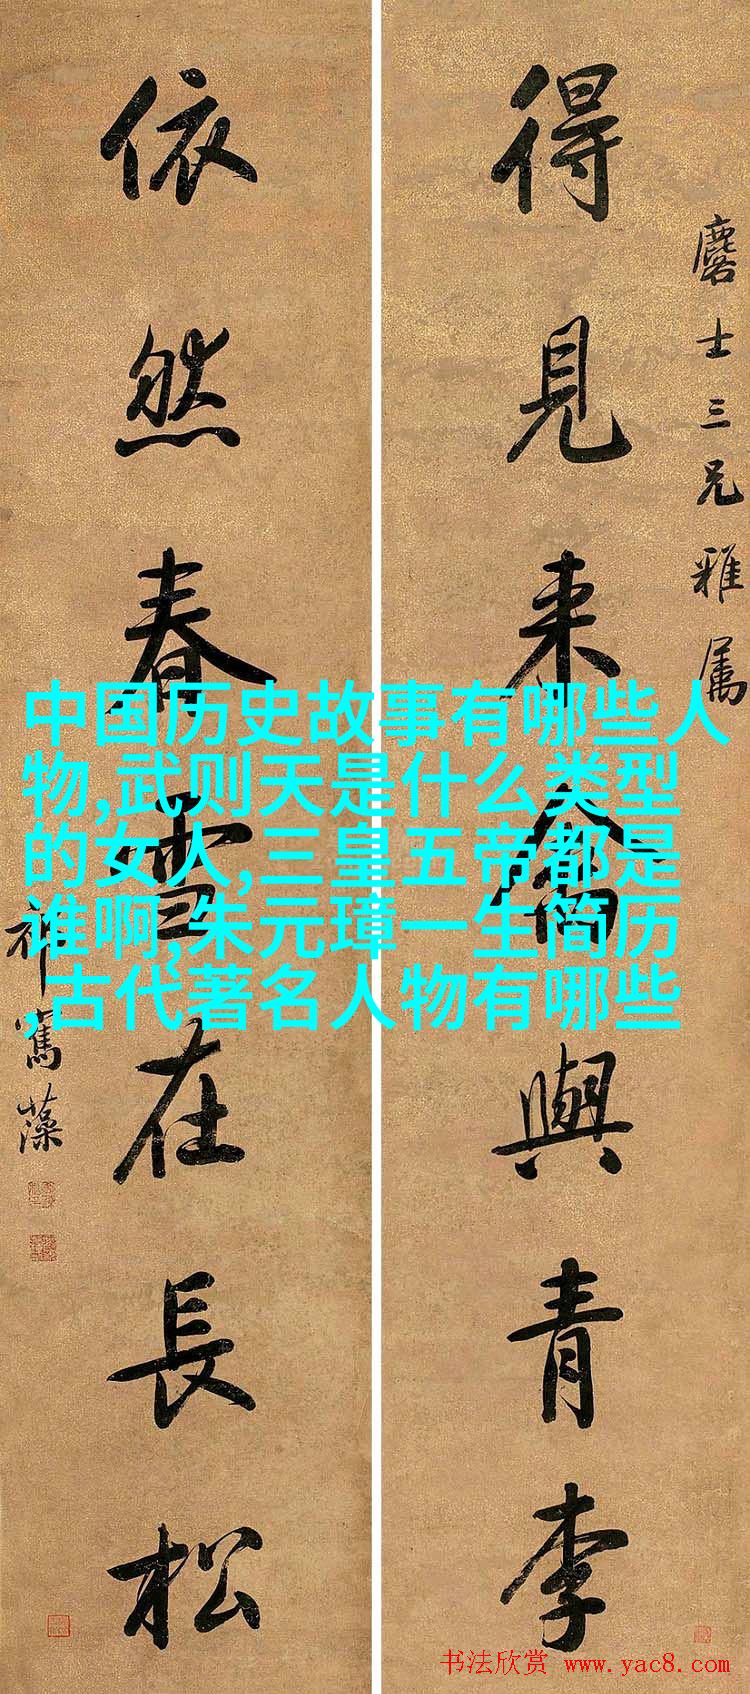 麐士三兄雅屬
得見来禽與青李
依然春雪在長松
祁寯藻
中国历史故事有哪些人
物,武则天是什么类型
的女人,三皇五帝都是
谁啊,朱元璋一生简历
,古代著名人物有哪些
书法欣赏 www.yac8.com